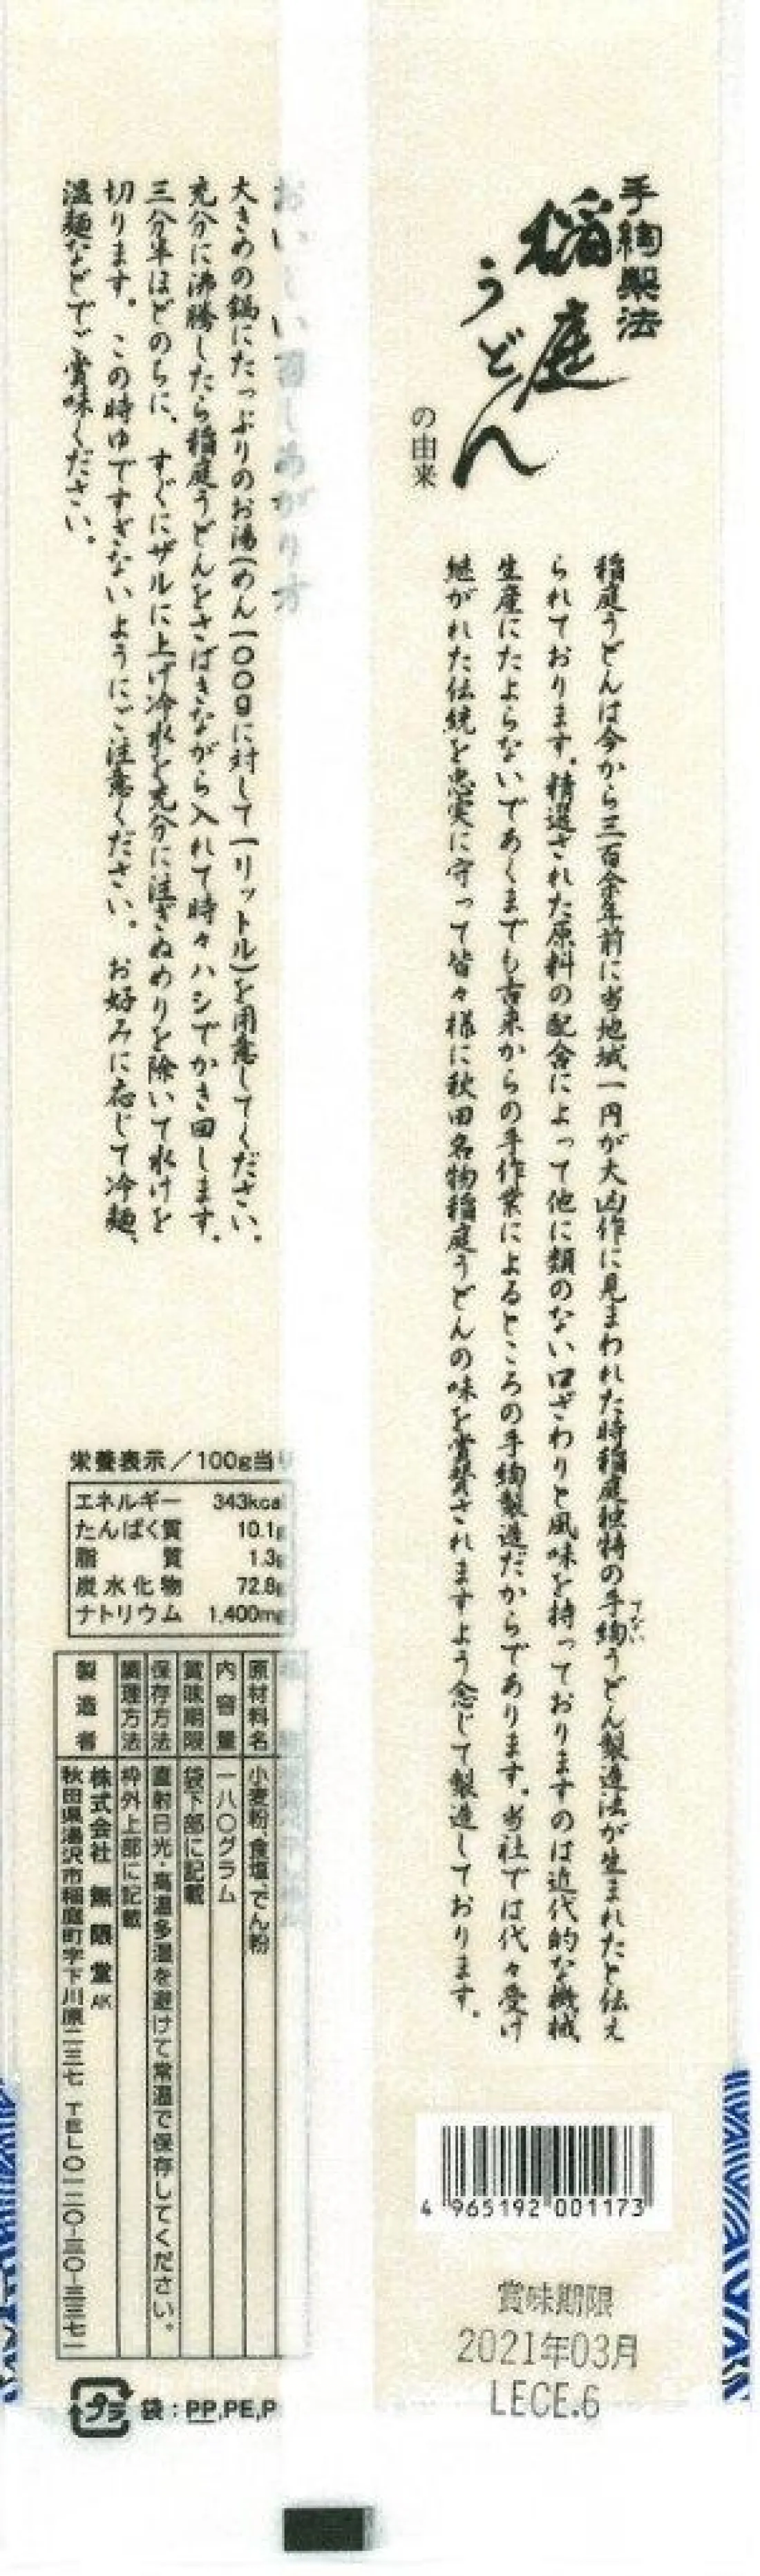 手綯製法
稲庭
うどん
の由来
稲庭うどんは今から三百余年前に当地域一円が大凶作に見まわれた時稲庭独特の手綯うどん製造法が生まれたと伝え
てない
られております。精選された原料の配合によって他に類のない口ざわりと風味を持っておりますのは近代的な機械
生産にたよらないであくまでも古来からの手作業によるところの手綯製造だからであります。当社では代々受け
継がれた伝統を忠実に守って皆々様に秋田名物稲庭うどんの味を賞賛されますよう念じて製造しております。
4 965192 001173
賞味期限
2021年03月
LECE.6
おいしい召しあがり方
大きめの鍋にたっぷりのお湯(めん一〇〇gに対して一リットル)を用意してください。
充分に沸騰したら稲庭うどんをさばきながら入れて時々ハシでかき回します。
三分半ほどのちに、すぐにザルに上げ冷水を充分に注ぎぬめりを除いて水けを
切ります。この時ゆですぎないようにご注意ください。お好みに応じて冷麺、
温麺などでご賞味ください。
栄養表示/100g当り
エネルギー 343kcal
たんぱく質 10.1g
脂質 1.3g
炭水化物 72.8g
ナトリウム 1,400mg
原材料名 小麦粉、食塩、でん粉
内容量 一八〇グラム
賞味期限 袋下部に記載
保存方法 直射日光・高温多湿を避けて常温で保存してください。
調理方法 枠外上部に記載
製造者 株式会社 無限堂 AK
秋田県湯沢市稲庭町字下川原二三七 TEL〇一二〇-三〇-三三七一
プラ 袋:PP,PE,P